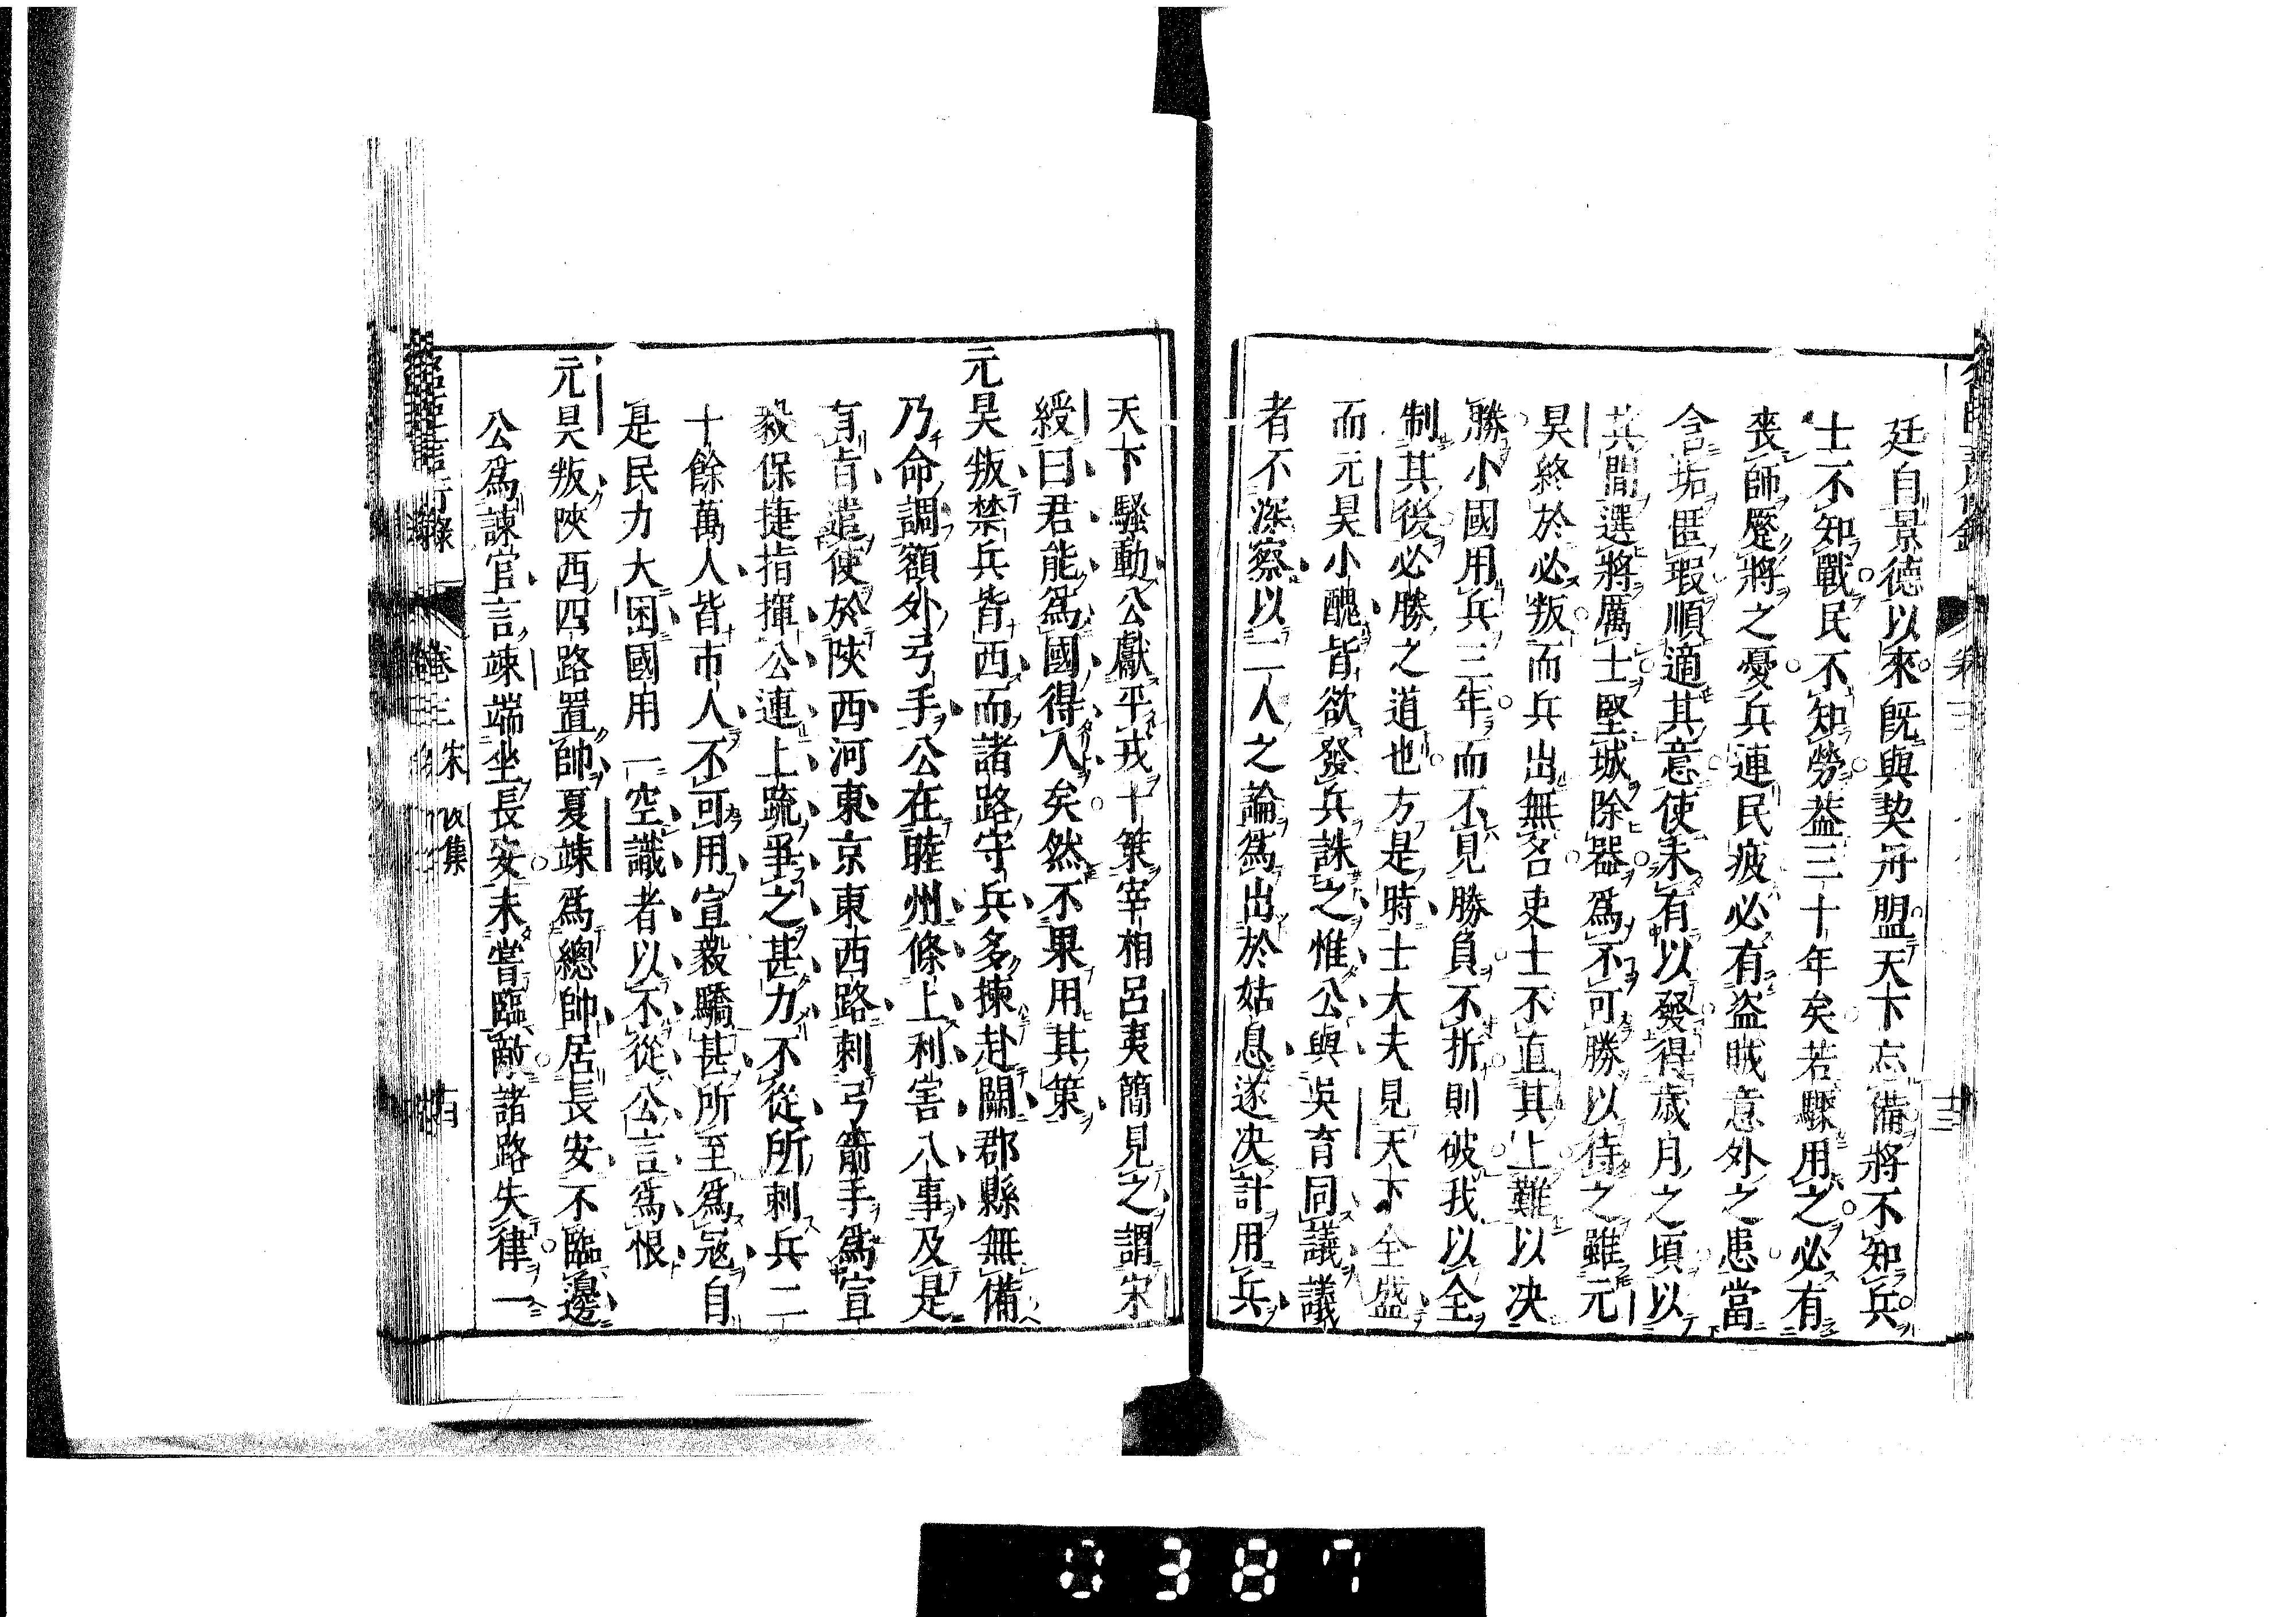 廷自景德以來既與契丹盟天下忘備將不知兵
士不知戰民不知勞蓋三十年矣若驟用之必有
喪師蹙將之憂兵連民疲必有盜賊意外之患當
含垢匿瑕順適其意使未有以發得歲月之頃以
其間選將厲士堅城除器爲不可勝以待之雖元
昊終於必叛而兵出無名吏士不直其上難以决
勝小國用兵三年而不見勝負不折則破我以全
制其後必勝之道也方是時士大夫見天下全盛
而元昊小醜皆欲發兵誅之惟公與吳育同議議
者不深察以二人之論爲出於姑息遂决計用兵
天下騷動公獻平戎十策宰相呂夷簡見之謂宋
綬曰君能爲國得人矣然不果用其策
元昊叛禁兵皆西而諸路守兵多揀赴闕郡縣無備
乃命調額外弓手公在睦州條上利害八事及是
有旨遣使於陝西河東京東西路刺弓箭手爲宣
毅保捷指揮公連上疏爭之甚力不從所刺兵二
十餘萬人皆市人不可用宣毅驕甚所至爲寇自
是民力大困國用一空識者以不從公言爲恨
元昊叛陝西四路置帥夏竦爲總帥居長安不臨邊
公爲諫官言竦端坐長安未嘗臨敵諸路失律一
名臣言行錄 卷三 宋 後集
0387